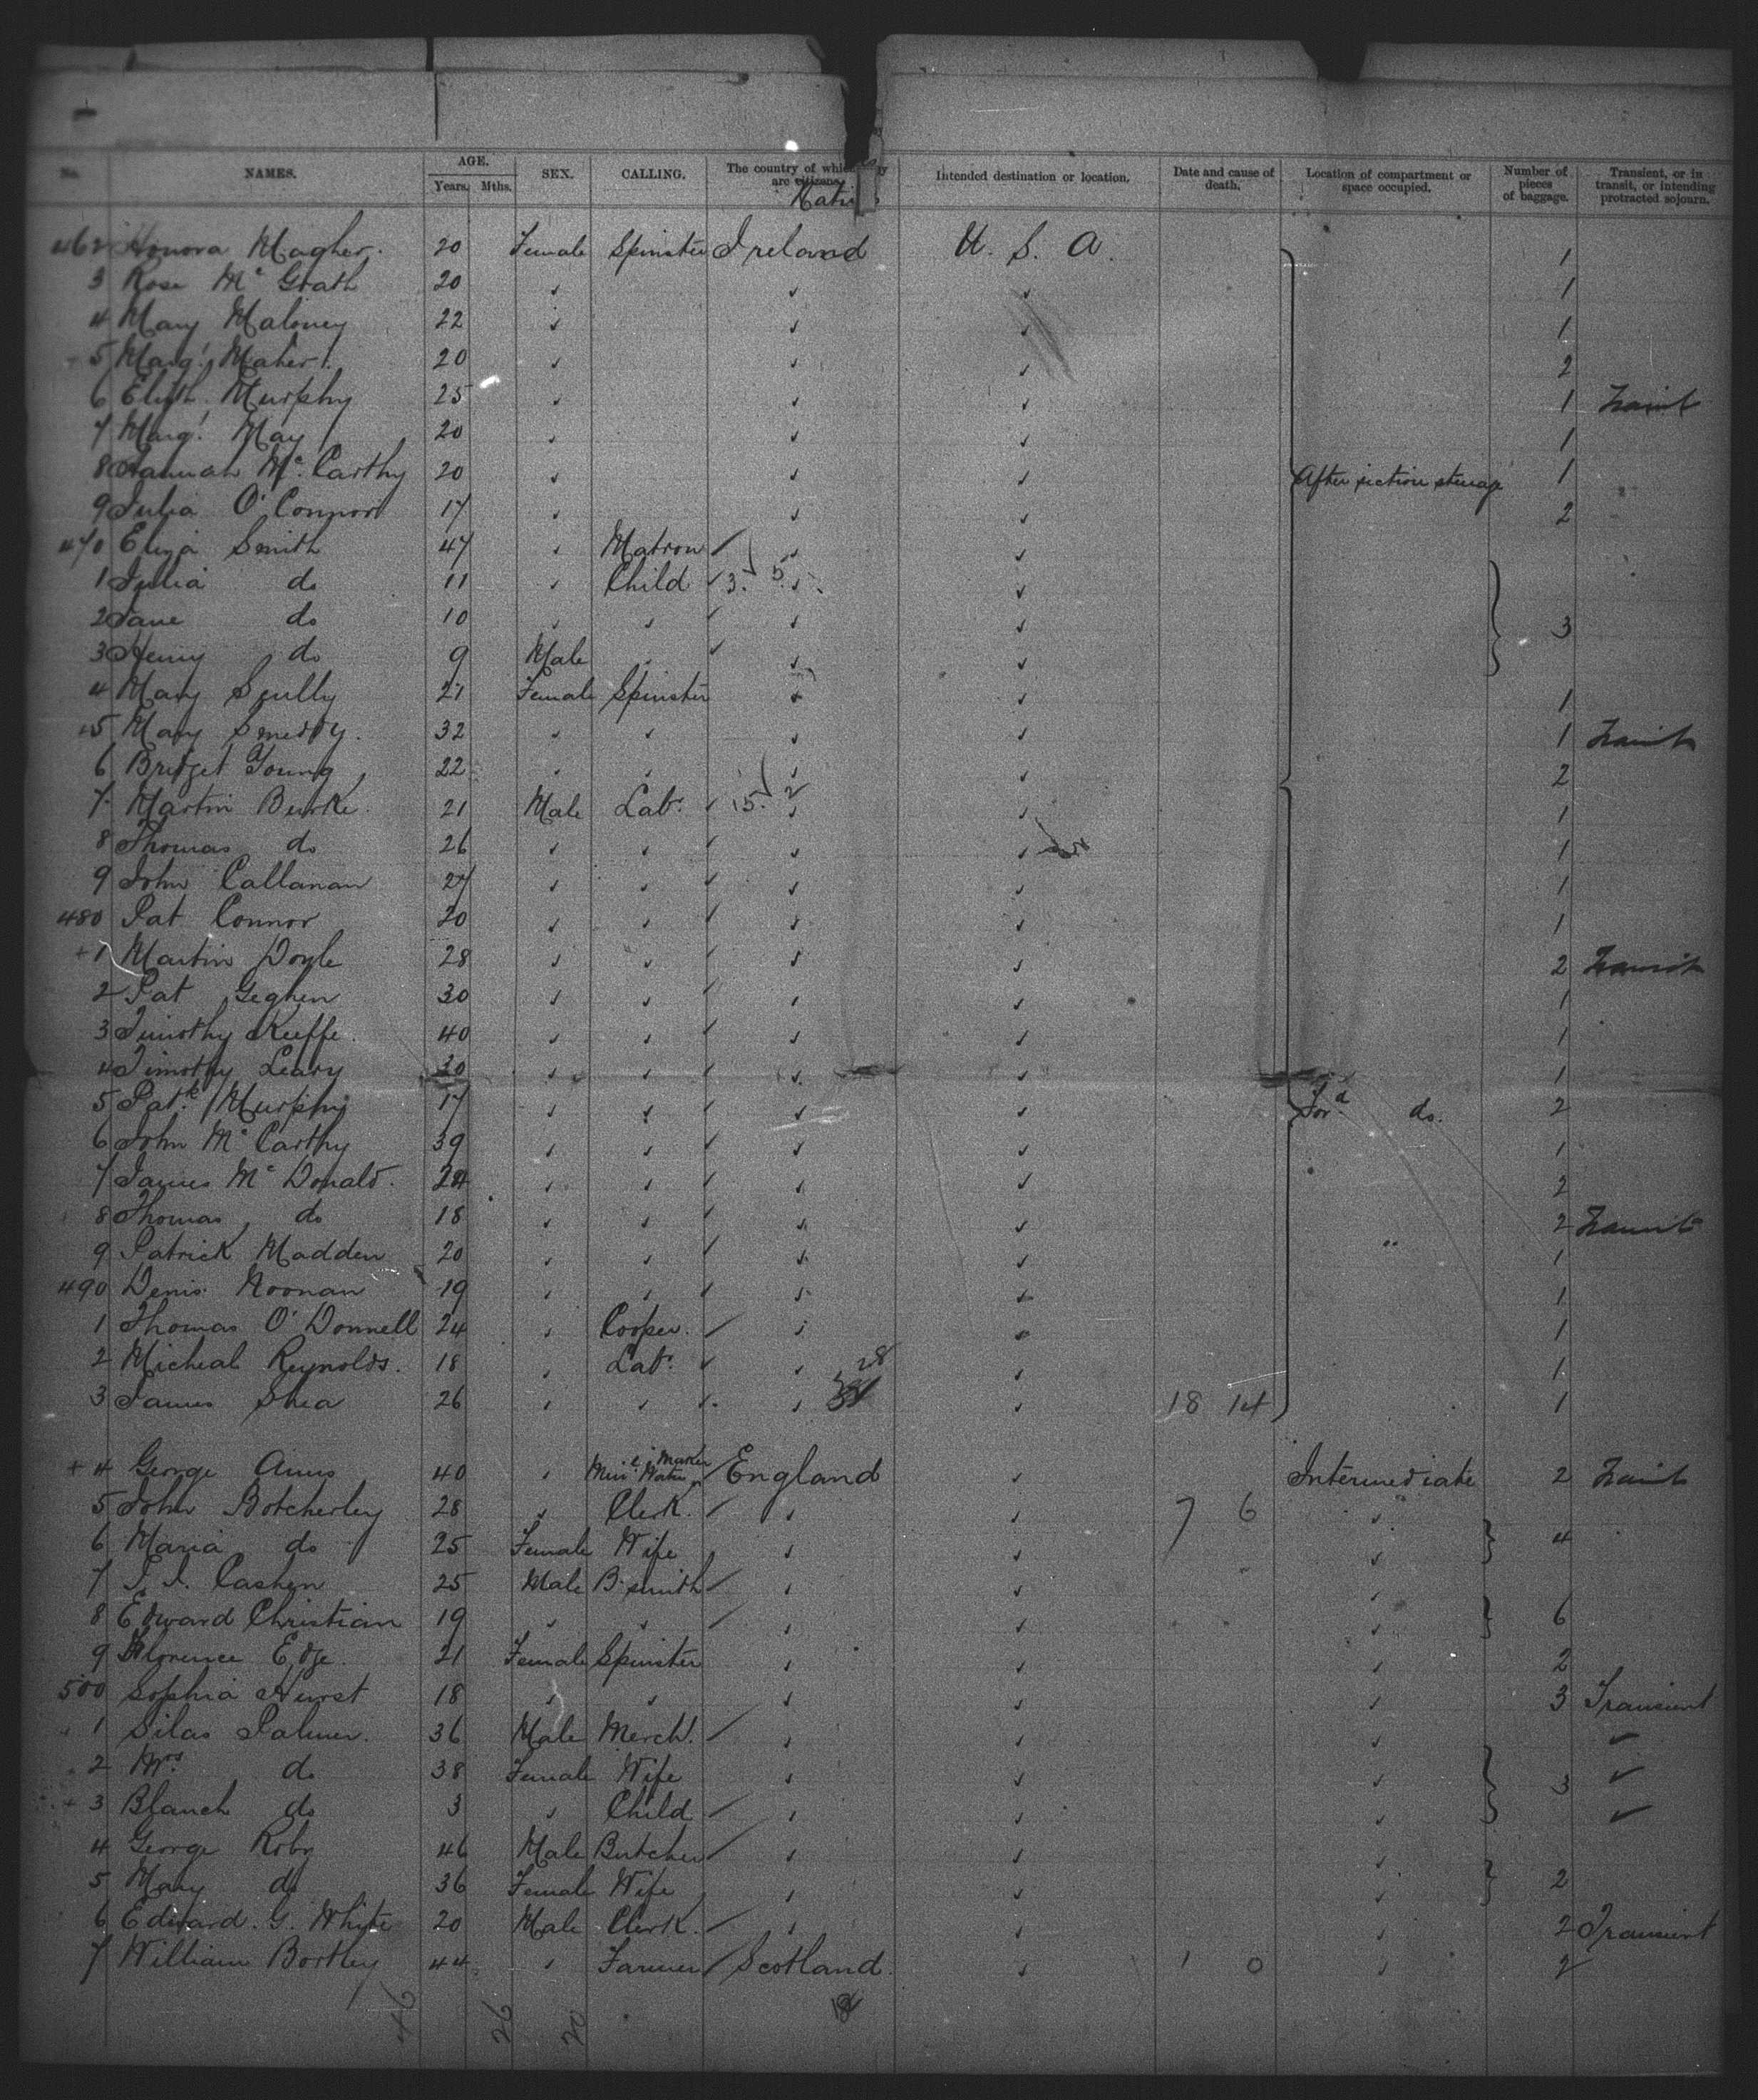 No. NAMES. AGE. Years. Mths. SEX. CALLING. The country of which they are citizens. Intended destination or location. Date and cause of death. Location of compartment or space occupied. Number of pieces of baggage. Transient, or in transit, or intending protracted sojourn.
462 Honora Magher. 20 Female Spinster Ireland U. S. A. 1
3 Rose Mc Grath 20 1
4 Mary Maloney 22 1
5 Margt Maher 20 2
6 Elizth Murphy 25 1 Transit
7 Margt May 20 1
8 Hannah Mc Carthy 20 After section steerage 1
9 Julia O'Connor 17 2
470 Eliza Smith 47 Matron
1 Julia do 11 Child 3. 5
2 Jane do 10 3
3 Henry do 9 Male
4 Mary Scully 21 Female Spinster 1
5 Mary Smeddy. 32 1 Transit
6 Bridget Young 22 2
7 Martin Burke. 21 Male Labr. 15. 2 1
8 Thomas do 26 1
9 John Callanan 27 1
480 Pat Connor 20 1
+1 Martin Doyle 28 2 Transit
2 Pat Geghen 30 1
3 Timothy Keeffe. 40 1
4 Timothy Leary 30 1
5 Patk Murphy 17 Ford do. 2
6 John Mc Carthy 39 1
7 James Mc Donald. 24 2
8 Thomas do 18 2 Transit
9 Patrick Madden 20 " 1
490 Denis Noonan 19 1
1 Thomas O'Donnell 24 Cooper. 1
2 Micheal Reynolds. 18 Labr. 28 1
3 James Shea 26 18 14 1
+4 George Ames 40 England Intermediate 2 Transit
5 John Botcherley 28 Clerk. 7 6
6 Maria do 25 Female Wife 4
7 J. J. Cashen 25 Male B. smith
8 Edward Christian 19 6
9 Florence Edge. 21 Female Spinster 2
500 Sophia Hurst 18 3 Transient
1 Silas Palmer. 36 Male Mercht.
2 Mrs do 38 Female Wife 3
+3 Blanch do 3 Child
4 George Roby 46 Male Butcher
5 Mary do 36 Female Wife 2
6 Edward. G. White 20 Male Clerk. 2 Transient
7 William Bortley 44 Farmer Scotland 1 0 2
46 26 20